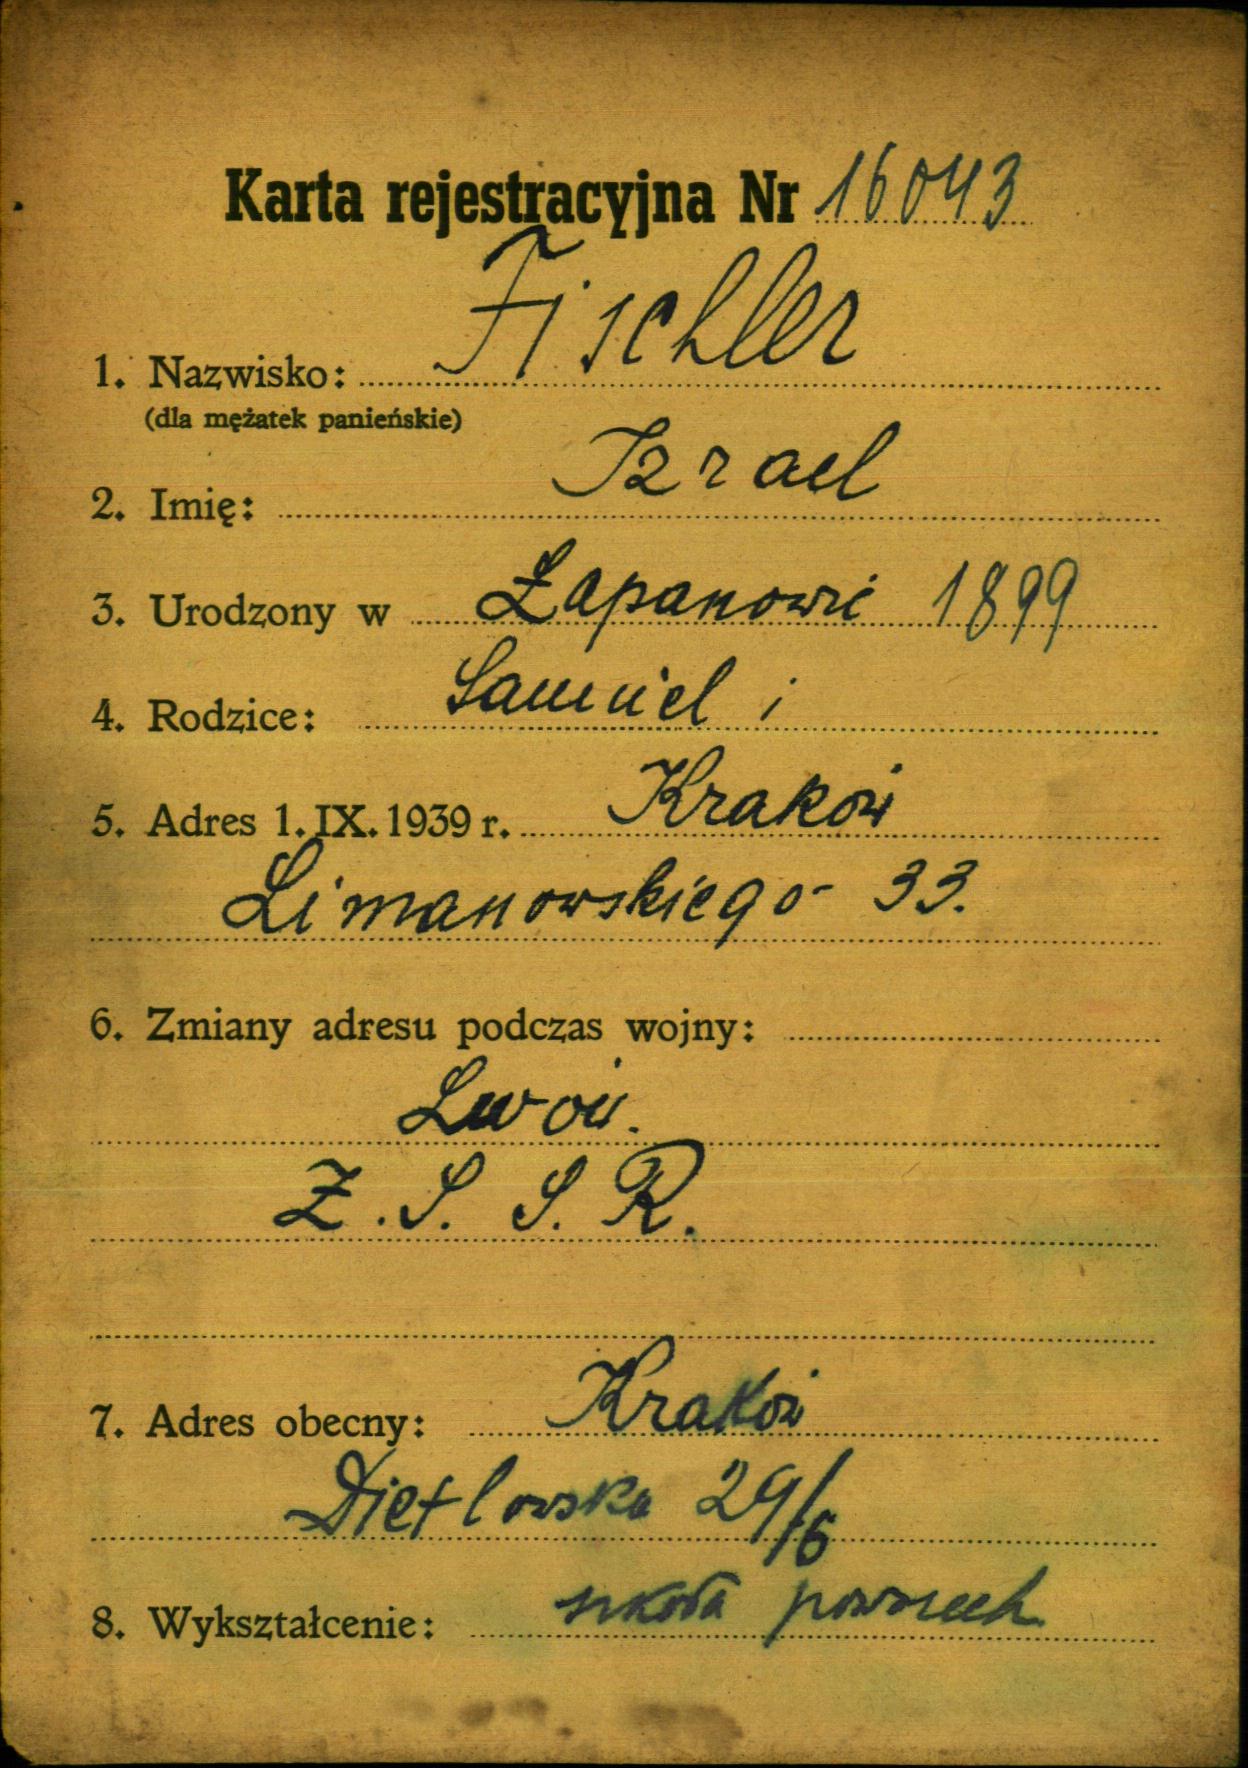 Karta rejestracyjna Nr 16043
Fischler
1. Nazwisko:
(dla mężatek panieńskie)
Izrael
2. Imię:
3. Urodzony w Łapanowie 1899
4. Rodzice: Samuel i
5. Adres 1. IX. 1939 r. Kraków
Limanowskiego 33.
6. Zmiany adresu podczas wojny:
Lwów.
Z. S. S. R.
7. Adres obecny: Kraków
Dietlowska 29/6
8. Wykształcenie: szkoła powszech.